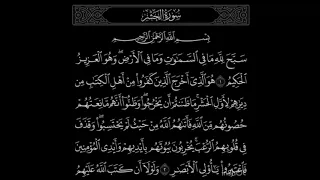 سُورَةُ الحَشْرِ
بِسْمِ اللَّهِ الرَّحْمَٰنِ الرَّحِيمِ
سَبَّحَ لِلَّهِ مَا فِي السَّمَٰوَٰتِ وَمَا فِي الْأَرْضِ ۖ وَهُوَ الْعَزِيزُ
الْحَكِيمُ ١ هُوَ الَّذِي أَخْرَجَ الَّذِينَ كَفَرُوا مِنْ أَهْلِ الْكِتَٰبِ مِن
دِيَٰرِهِمْ لِأَوَّلِ الْحَشْرِ ۚ مَا ظَنَنتُمْ أَن يَخْرُجُوا ۖ وَظَنُّوا أَنَّهُم مَّانِعَتُهُمْ
حُصُونُهُم مِّنَ اللَّهِ فَأَتَىٰهُمُ اللَّهُ مِنْ حَيْثُ لَمْ يَحْتَسِبُوا ۖ وَقَذَفَ
فِي قُلُوبِهِمُ الرُّعْبَ ۚ يُخْرِبُونَ بُيُوتَهُم بِأَيْدِيهِمْ وَأَيْدِي الْمُؤْمِنِينَ
فَاعْتَبِرُوا يَٰأُولِي الْأَبْصَٰرِ ٢ وَلَوْلَا أَن كَتَبَ اللَّهُ عَلَيْهِمُ